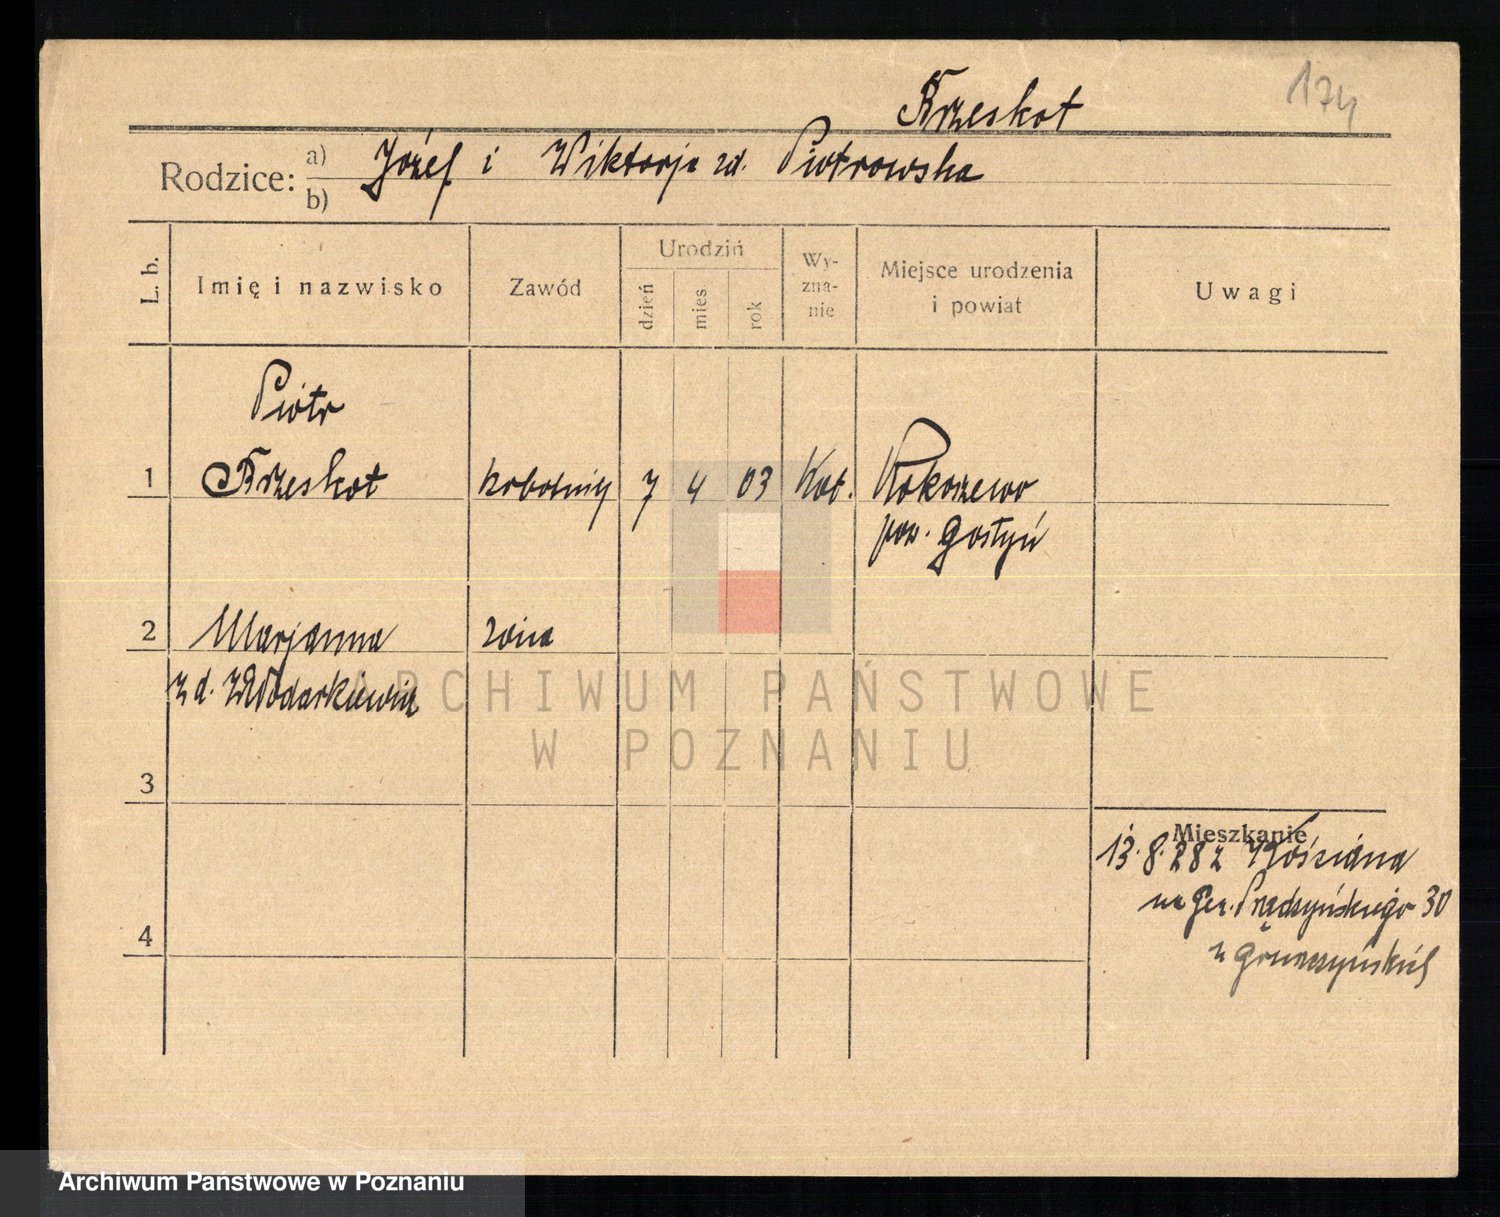 Brzeskot
174
Rodzice: a) Józef i Wiktorja zd. Piotrowska
b)
L. b.
Imię i nazwisko
Zawód
Urodzin
dzień
mies
rok
Wy-
zna-
nie
Miejsce urodzenia
i powiat
Uwagi
Piotr
1 Brzeskot robotnik 7 4 03 Kat. Kokoszewo
pow. Gostyń
2 Marjanna żona
z d. Włodarkiewicz
3
4
Mieszkanie
13.8.28 z Kościana
na Gen. Prądzyńskiego 30
u
ARCHIWUM PAŃSTWOWE
W POZNANIU
Archiwum Państwowe w Poznaniu